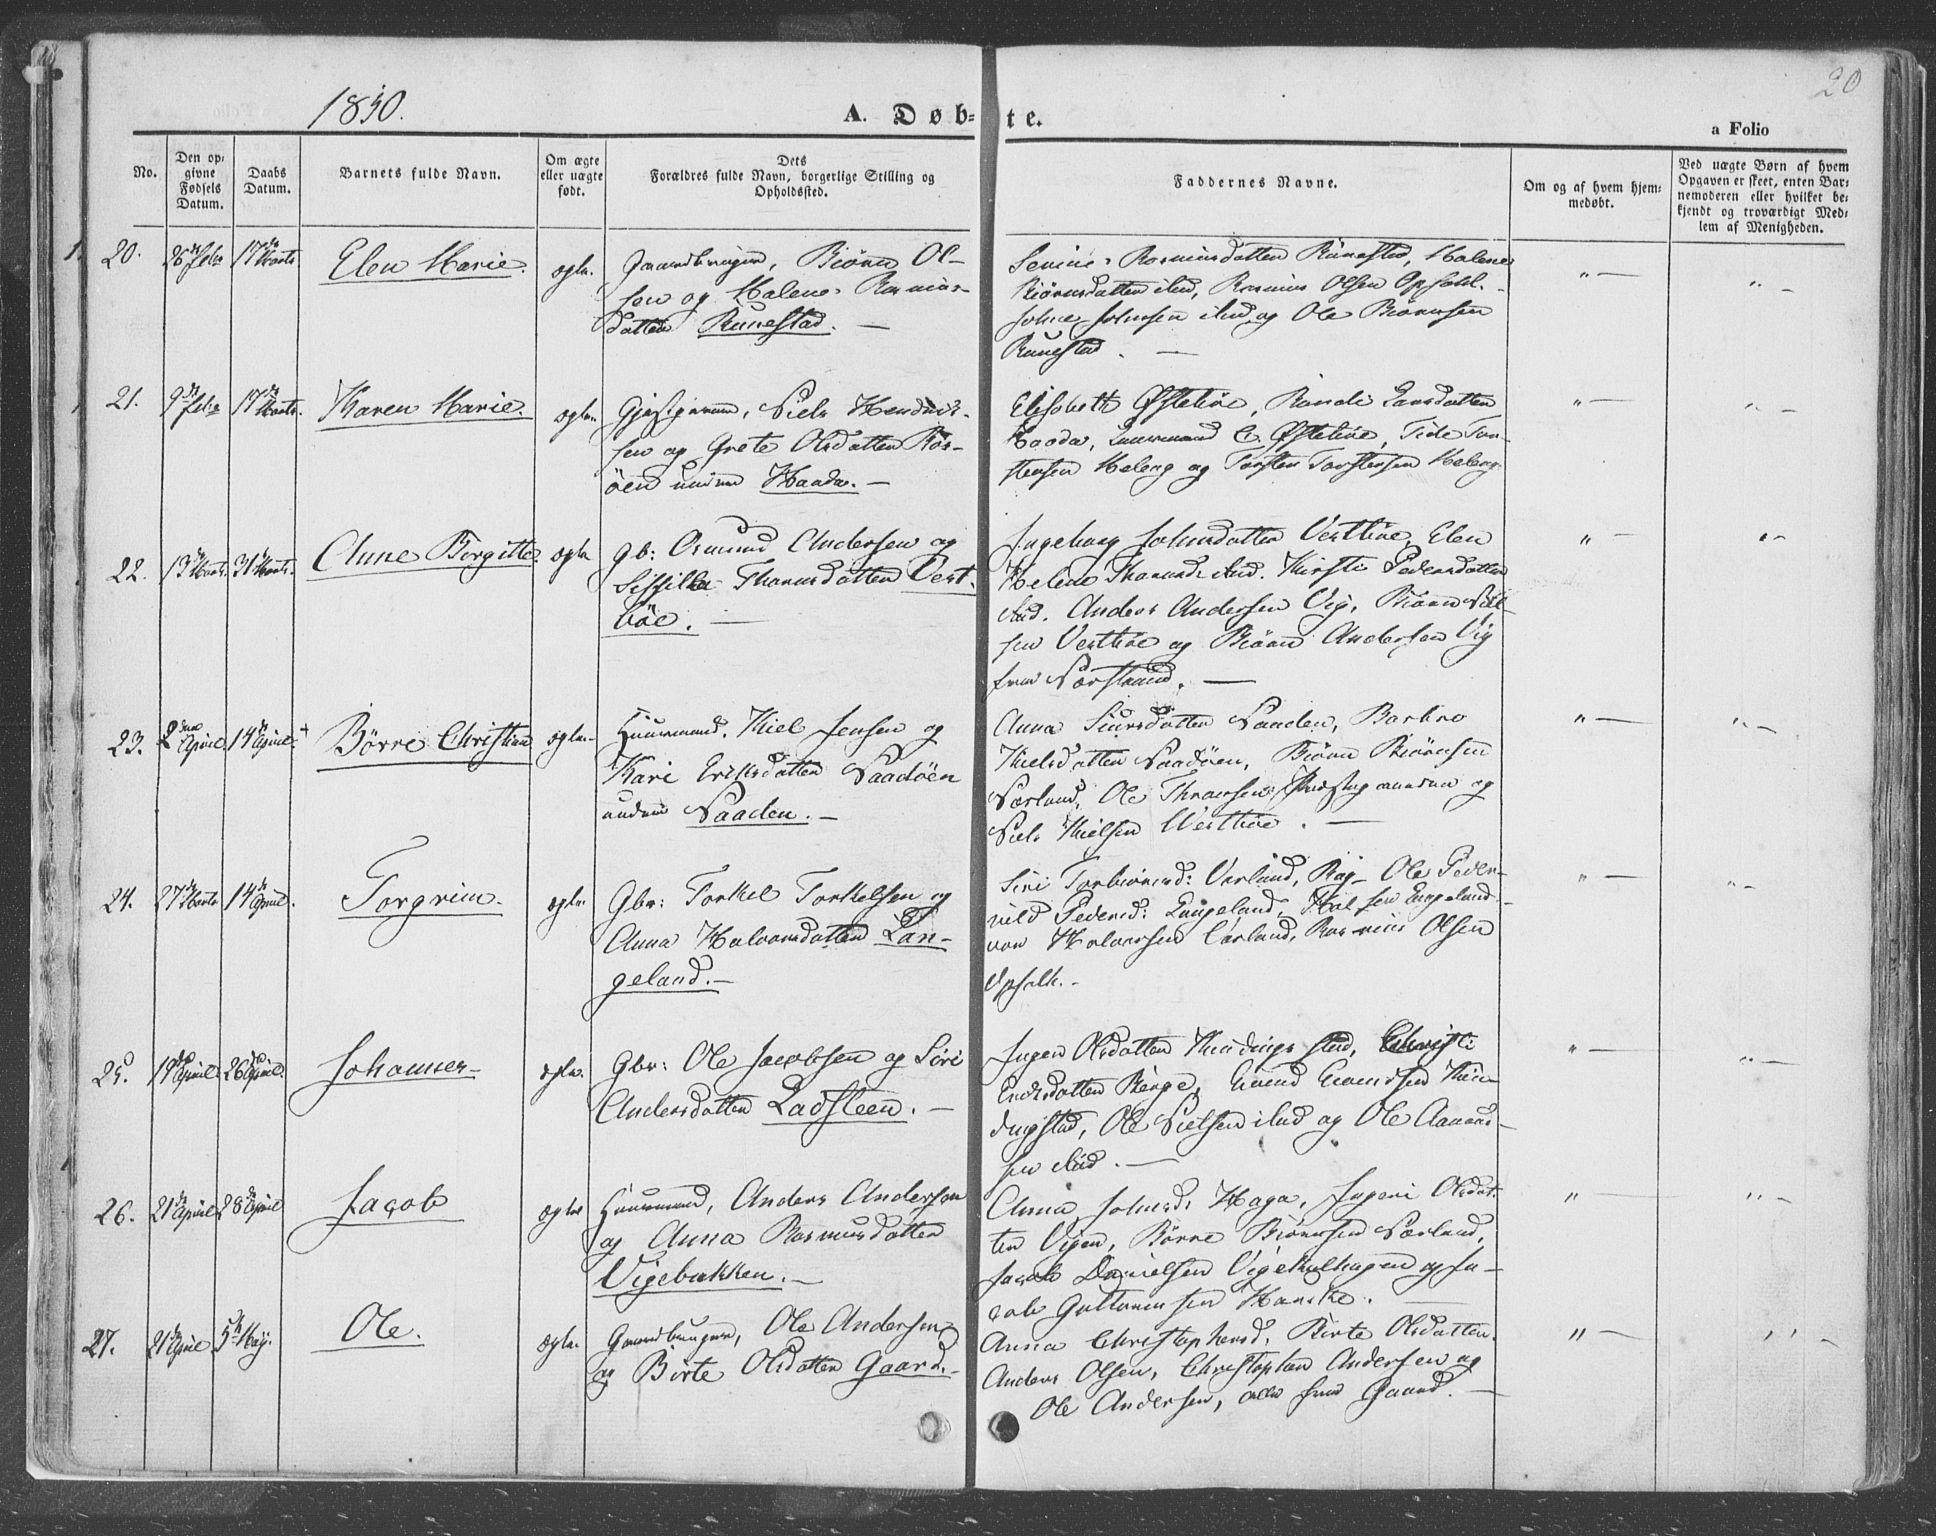 1850.
A. Døb-te.
20
a Folio
No.
Den op-
givne
Fødsels
Datum.
Daabs
Datum.
Barnets fulde Navn.
Om ægte
eller uægte
født.
Dets
Forældres fulde Navn, borgerlige Stilling og
Opholdssted.
Faddernes Navne.
Om og af hvem hjem-
medøbt.
Ved uægte Børn af hvem
Opgaven er skeet, enten Bar-
nemoderen eller hvilket be-
kjendt og troværdigt Med-
lem af Menigheden.
20. 26de Febr 17de Marts Elen Marie. ægte. Gaardbruger, Biørn Ol-
sen og Malene Rasmus-
datter Runestad. —
Rasmusdatter Runestad, Malene
Biørnsdatter ibid, Rasmus Olsen Opsahl.
Johnsen ibid og Ole Biørnsen
Runestad. —
21. 9de Febr 17de Marts. Karen Marie. ægte. Niels Hendrik-
sen og Grete Olsdatter
under Haada. —
Elisabeth Østebøe, Larsdatter
Haada, Østebøe, Tor-
stensen Heleng og Torsten Torstensen Heleng.
22. 13de Marts. 31te Marts. Anne Birgitte. ægte Gb: Osmund Andersen og
Sissilla Thomasdatter Vest-
bøe. —
Ingeborg Johnsdatter Vestbøe, Elen
Helene ibid. Kirsti Pedersdatter
ibid. Anders Andersen Vig, Biørn Niel-
sen Vestbøe og Biørn Andersen Vig
fra Nærstrand. —
23. 2den April 14de April. Børre Christian ægte. Huusmand, Kiel Jensen og
Kari Eriksdatter Naadøen
under Naaden. —
Anna Siursdatter Naaden, Barbro
Kielsdatter Naadøen, Biørn Biørnsen
Nærland, Ole og
Niels Kielsen Westbøe. —
24. 27de Marts 14de April. Torgrim. ægte. Gbr: Torkel Torkelsen og
Anna Halvorsdatter Lan-
geland. —
Siri Torbiørnsd: Varland, Rag- Ole Peder-
nild Pedersd: Langeland, Hal- sen Langeland.
vor Halvorsen Varland, Rasmus Olsen
Opsahl. -
25. 19de April. 26de April. Johannes ægte. Gbr: Ole Jacobsen og Siri
Andersdatter Ladsteen. —
Inger Olsdatter Kindingstad, Christi
Berge, Kin-
dingstad, Ole Nielsen ibid og Ole Aamund-
sen ibid. —
26. 21de April 28de April Jacob ægte Huusmand, Anders Andersen
og Anna Rasmusdatter
Vigebakken. —
Anna Johnsd: Haga, Ingeri Olsdat-
ter Vigen, Børre Biørnsen Nærland,
Jacob Danielsen og Ja-
cob Guttormsen —
27. 21de April 5te May. Ole. ægte. Gaardbruger, Ole Andersen
og Birte Olsdatter Gaard. —
Anna Christophersd. Birte Olsdatter.
Anders Olsen, Christopher Andersen og
Ole Andersen, alle fra Gaard. —